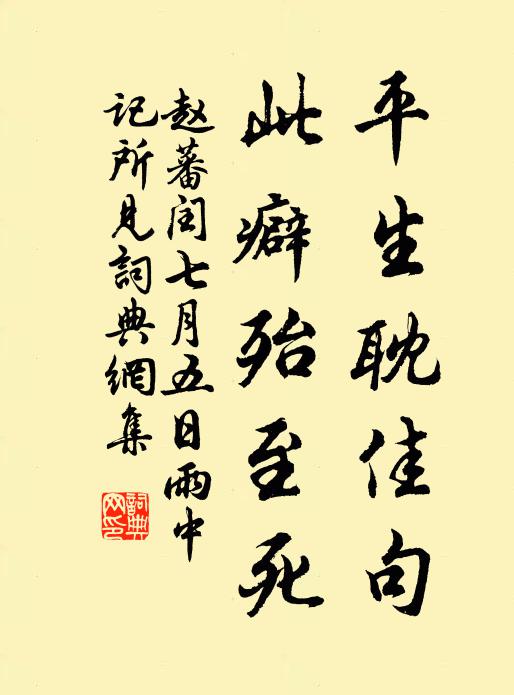 平生耽佳句
此癖殆至死
赵蕃闰七月五日雨中
记所见詞典網集
詞典网印